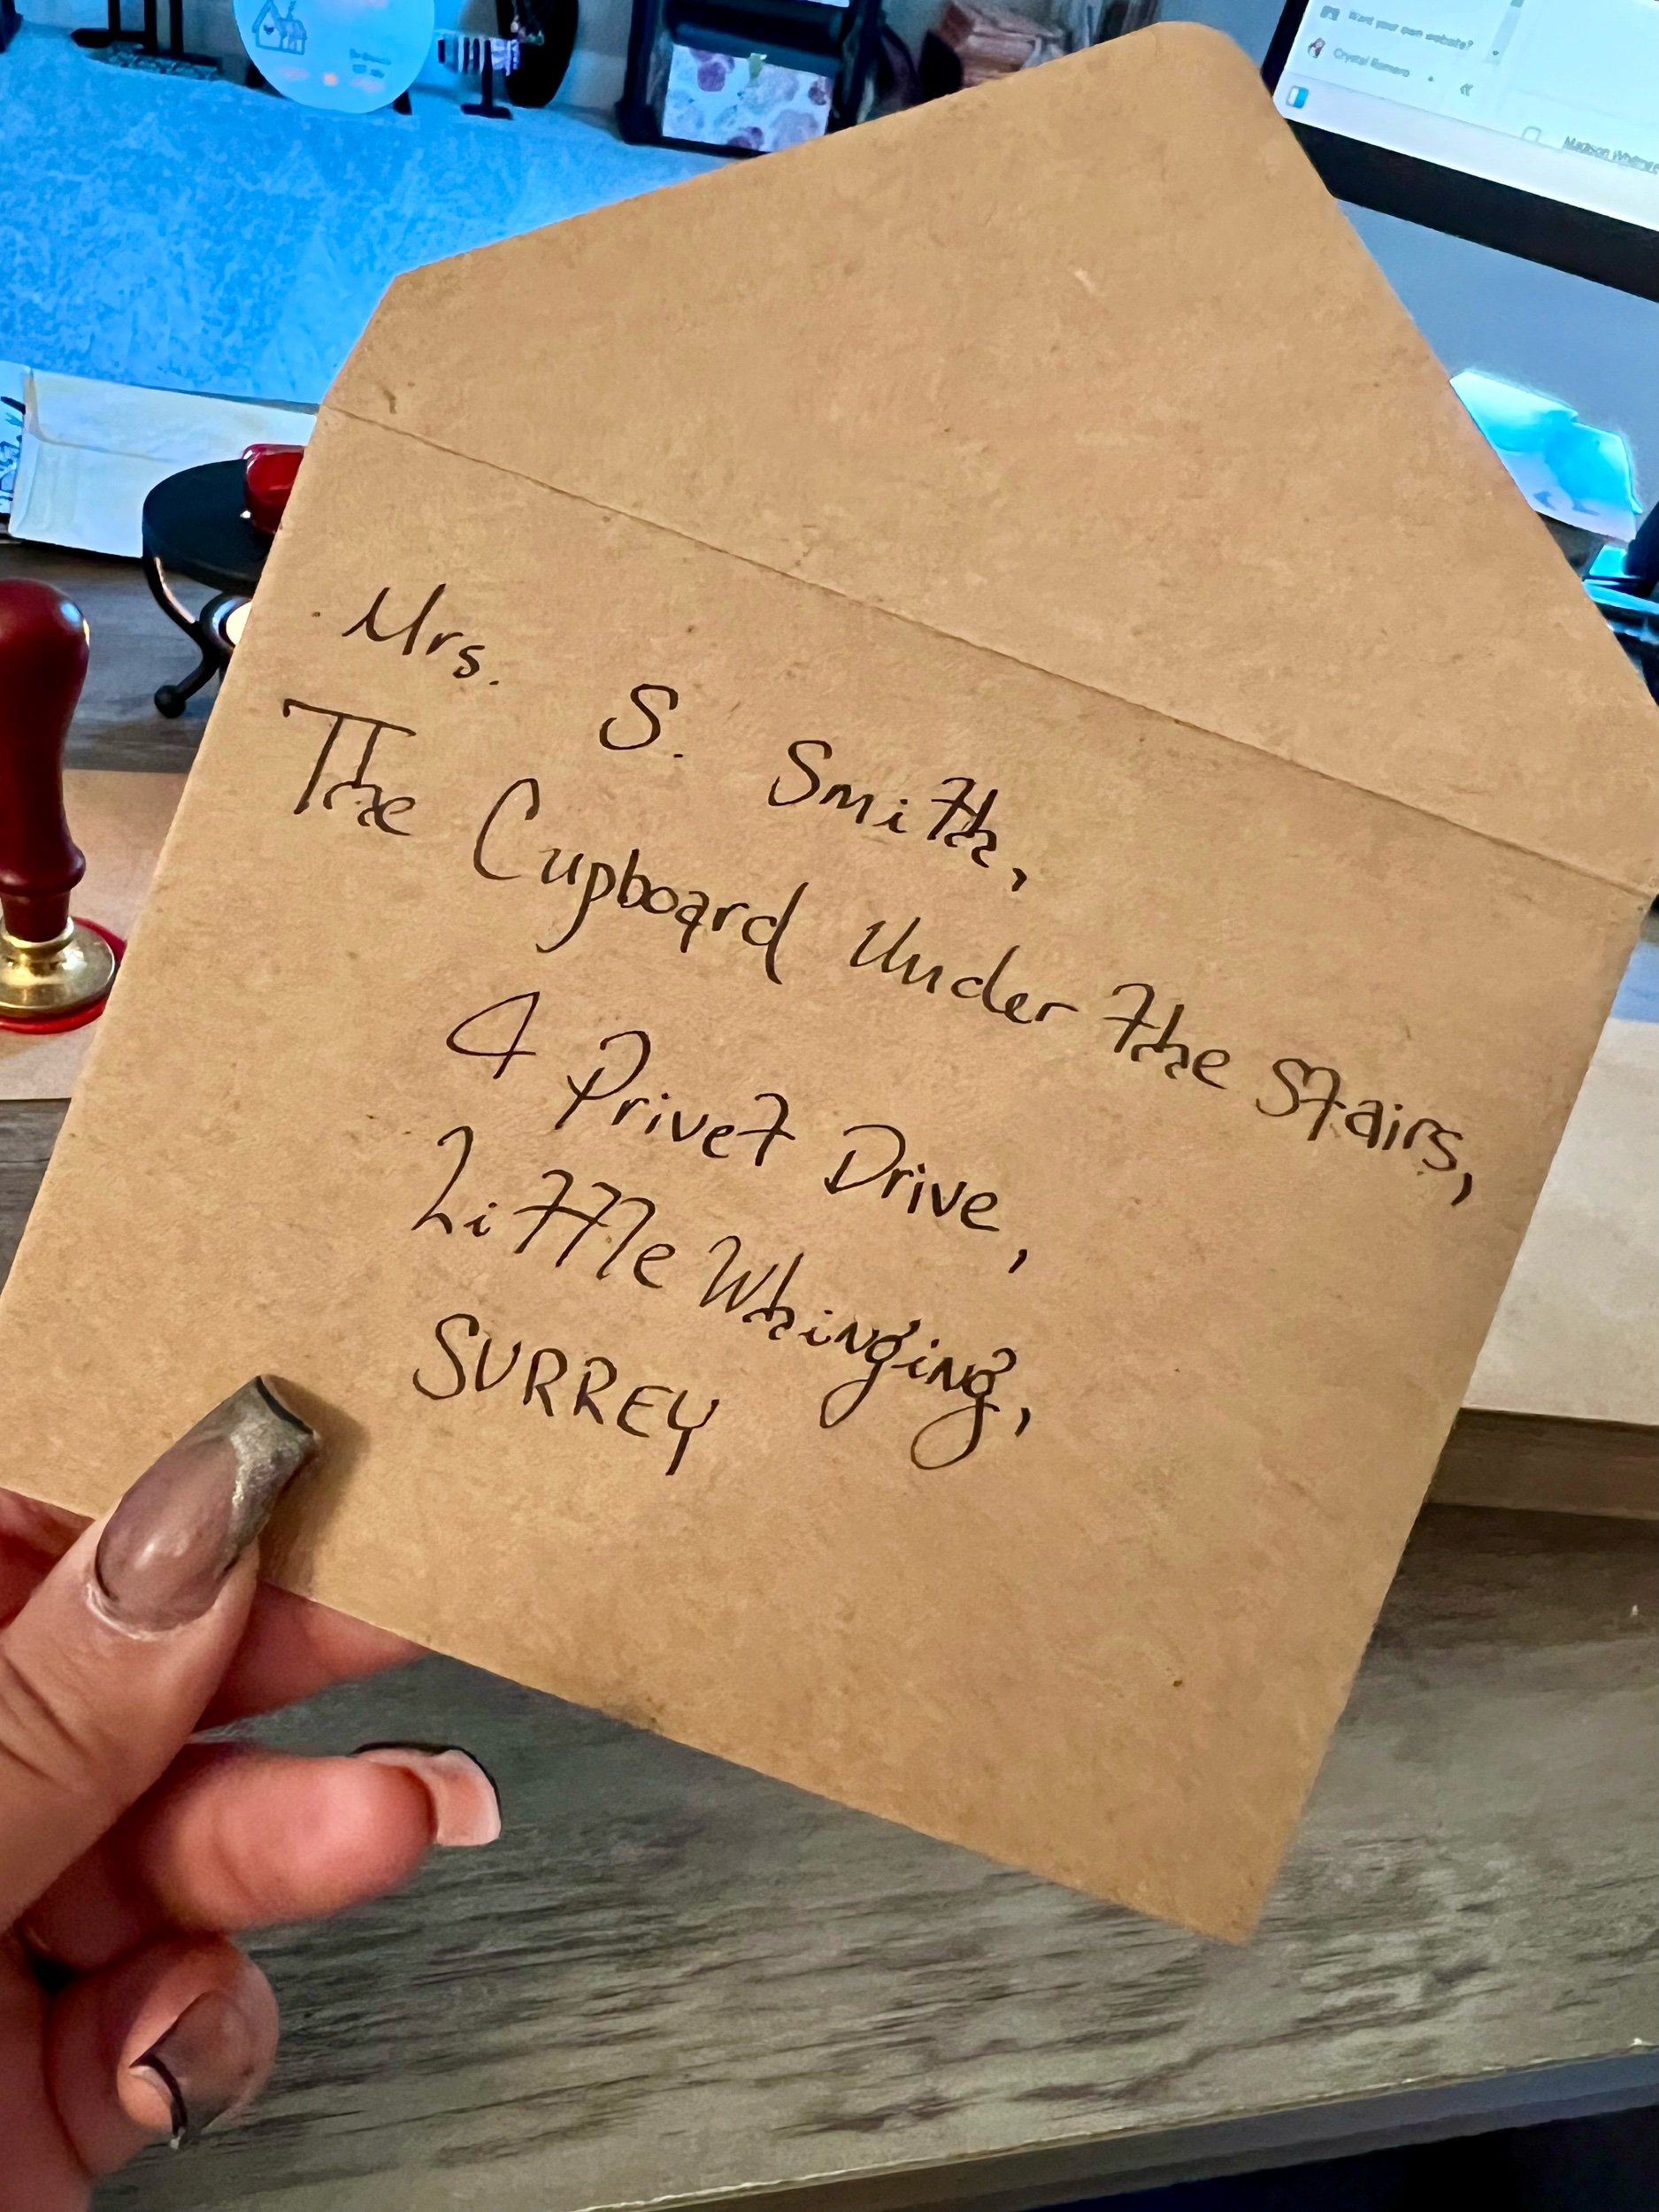 Want your own website?
Crystal Romero
Madison Whitmer
Mrs. S. Smith,
The Cupboard Under the Stairs,
4 Privet Drive,
Little Whinging,
SURREY